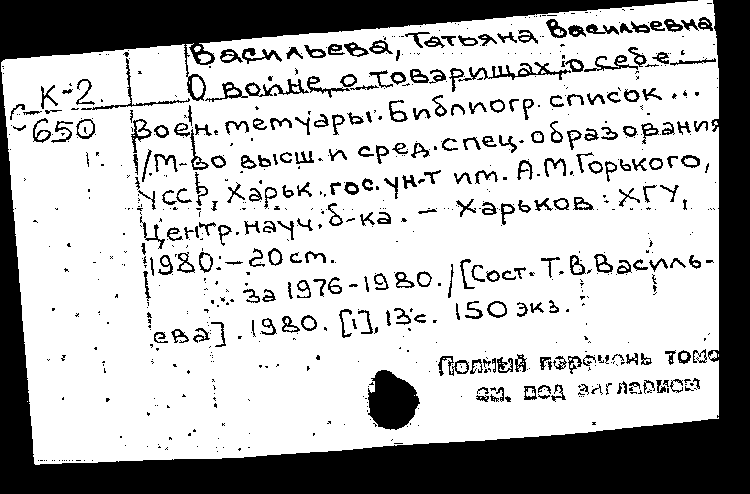 Васильева, Татьяна Васильевна
К-2. О войне, о товарищах, о себе:
650 Воен. мемуары. Библиогр. список ...
/М-во высш. и сред. спец. образования
УССР, Харьк. гос. ун-т им. А.М.Горького,
Центр. науч. б-ка. – Харьков: ХГУ,
1980.– 20 см.
за 1976-1980. /[Сост. Т.В.Василь-
ева]. 1980. [1], 13с. 150 экз.
Полный перечень томо
см. под заглавием